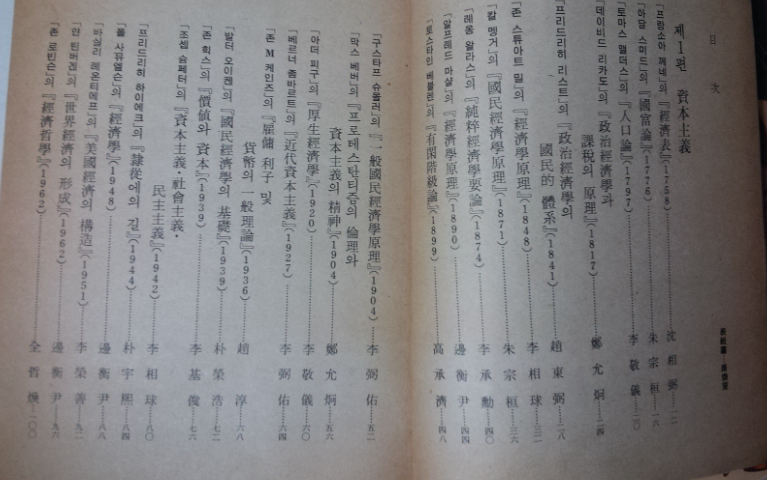 目 次
제1편 資本主義
「프랑소아 께네」의 『經濟表』(1758)……沈相弼…一二
「아담 스미드」의 『國富論』(1776)……朱宗桓…一六
「토마스 맬더스」의 『人口論』(1797)……李敬儀…二〇
「데이비드 리카도」의 『政治經濟學과
課税의 原理』(1817)……鄭允炯…二四
「프리드리히 리스트」의 『政治經濟學의
國民的 體系』(1841)……趙東弼…二八
「존 스튜아트 밀」의 『經濟學原理』(1848)……李相球…三二
「칼 멩거」의 『國民經濟學原理』(1871)……朱宗桓…三六
「레옹 왈라스」의 『純粹經濟學要論』(1874)……李承勳…四〇
「알프레드 마샬」의 『經濟學原理』(1890)……邊衡尹…四四
「토스타인 베블렌」의 『有閑階級論』(1899)……高承濟…四八
「구스타프 슈몰러」의 『一般國民經濟學原理』(1904)……李弼佑…五二
「막스 베버」의 『프로테스탄티즘의 倫理와
資本主義의 精神』(1904)……鄭允炯…五六
「아더 피구」의 『厚生經濟學』(1920)……李敬儀…六〇
「베르너 좀바르트」의 『近代資本主義』(1927)……李弼佑…六四
「존 M 케인즈」의 『雇傭 利子 및
貨幣의 一般理論』(1936)……趙淳…六八
「발터 오이켄」의 『國民經濟學의 基礎』(1939)……朴榮浩…七二
「존 힉스」의 『價値와 資本』(1939)……李基俊…七六
「조셉 슘페터」의 『資本主義·社會主義·
民主主義』(1942)……李相球…八〇
「프리드리히 하이에크」의 『隷從에의 길』(1944)……朴宇熙…八四
「폴 사뮤엘슨」의 『經濟學』(1948)……邊衡尹…八八
「바실리 레온티에프」의 『美國經濟의 構造』(1951)……李榮善…九二
「얀 틴버겐」의 『世界經濟의 形成』(1962)……邊衡尹…九六
「존 로빈슨」의 『經濟哲學』(1962)……全哲煥…一〇〇